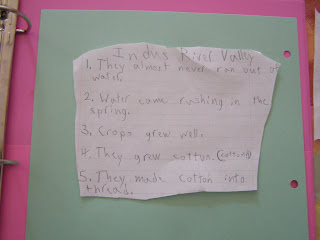 Indus River Valley
1. They almost never ran out of
water.
2. Water came rushing in the
spring.
3. Crops grew well.
4. They grew cotton. (cotton)
5. They made cotton into
thread.